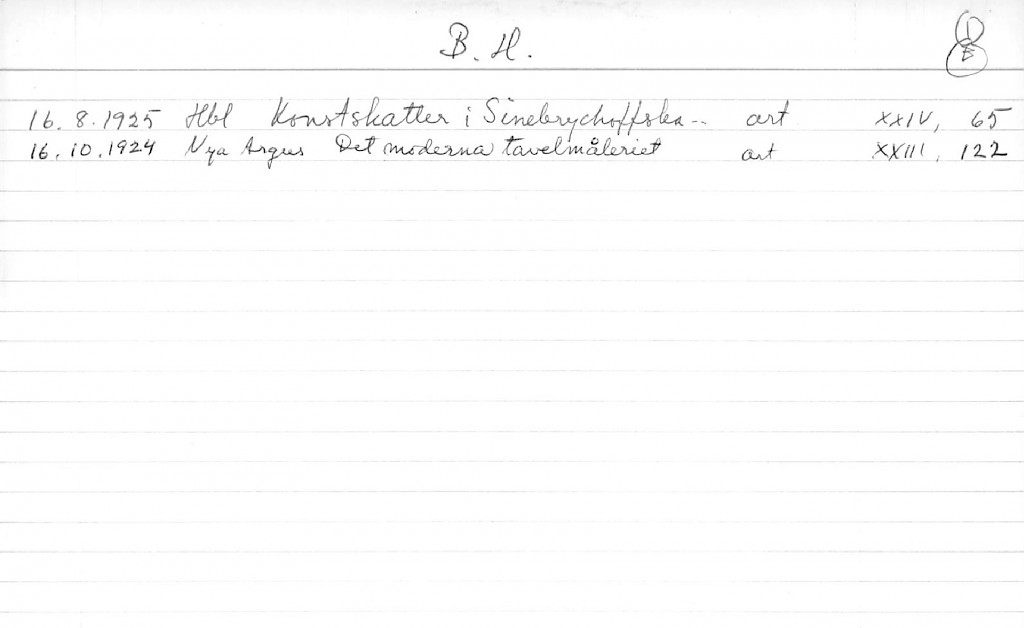 B. H.
16. 8. 1925 Hbl Konstskatter i Sinebrychoffska -- art XXIV, 65
16. 10. 1924 Nya Argus Det moderna tavelmåleriet art XXIII, 122